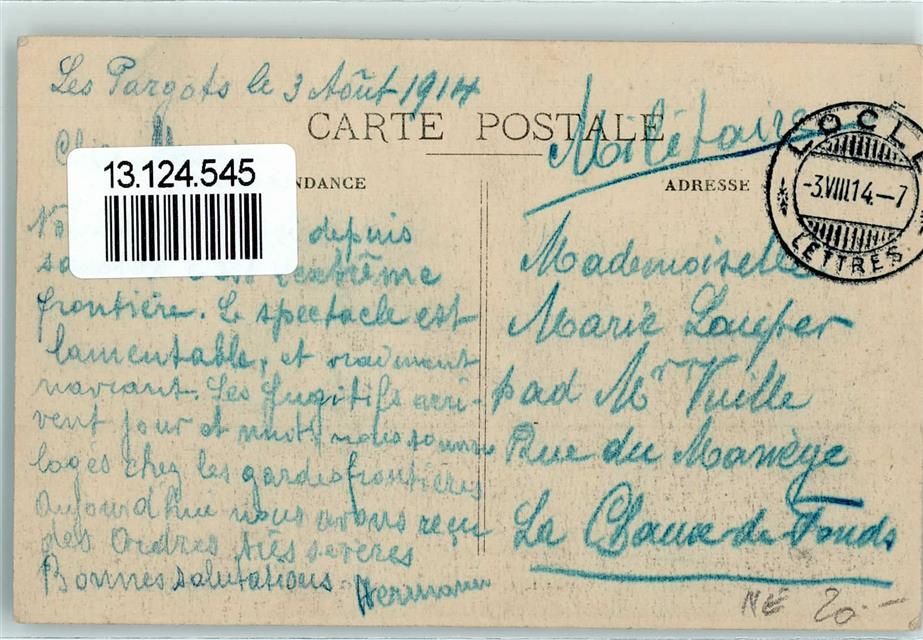 Les Pargots le 3 Août 1914
CARTE POSTALE
Militaire
LOCLE
-3.VIII.14.-7
LETTRES
13.124.545
NDANCE
ADRESSE
depuis
extrême
frontière. Le spectacle est
lamentable, et vraiment
navrant. Les fugitifs arri-
vent jour et nuit, nous sommes
logés chez les gardes frontières
Aujourd'hui nous avons reçu
des Ordres très sévères
Bonnes salutations Hermann
Mademoiselle
Marie
pad Mr Vuille
Rue du Manège
La Chaux-de-Fonds
NE 20.-